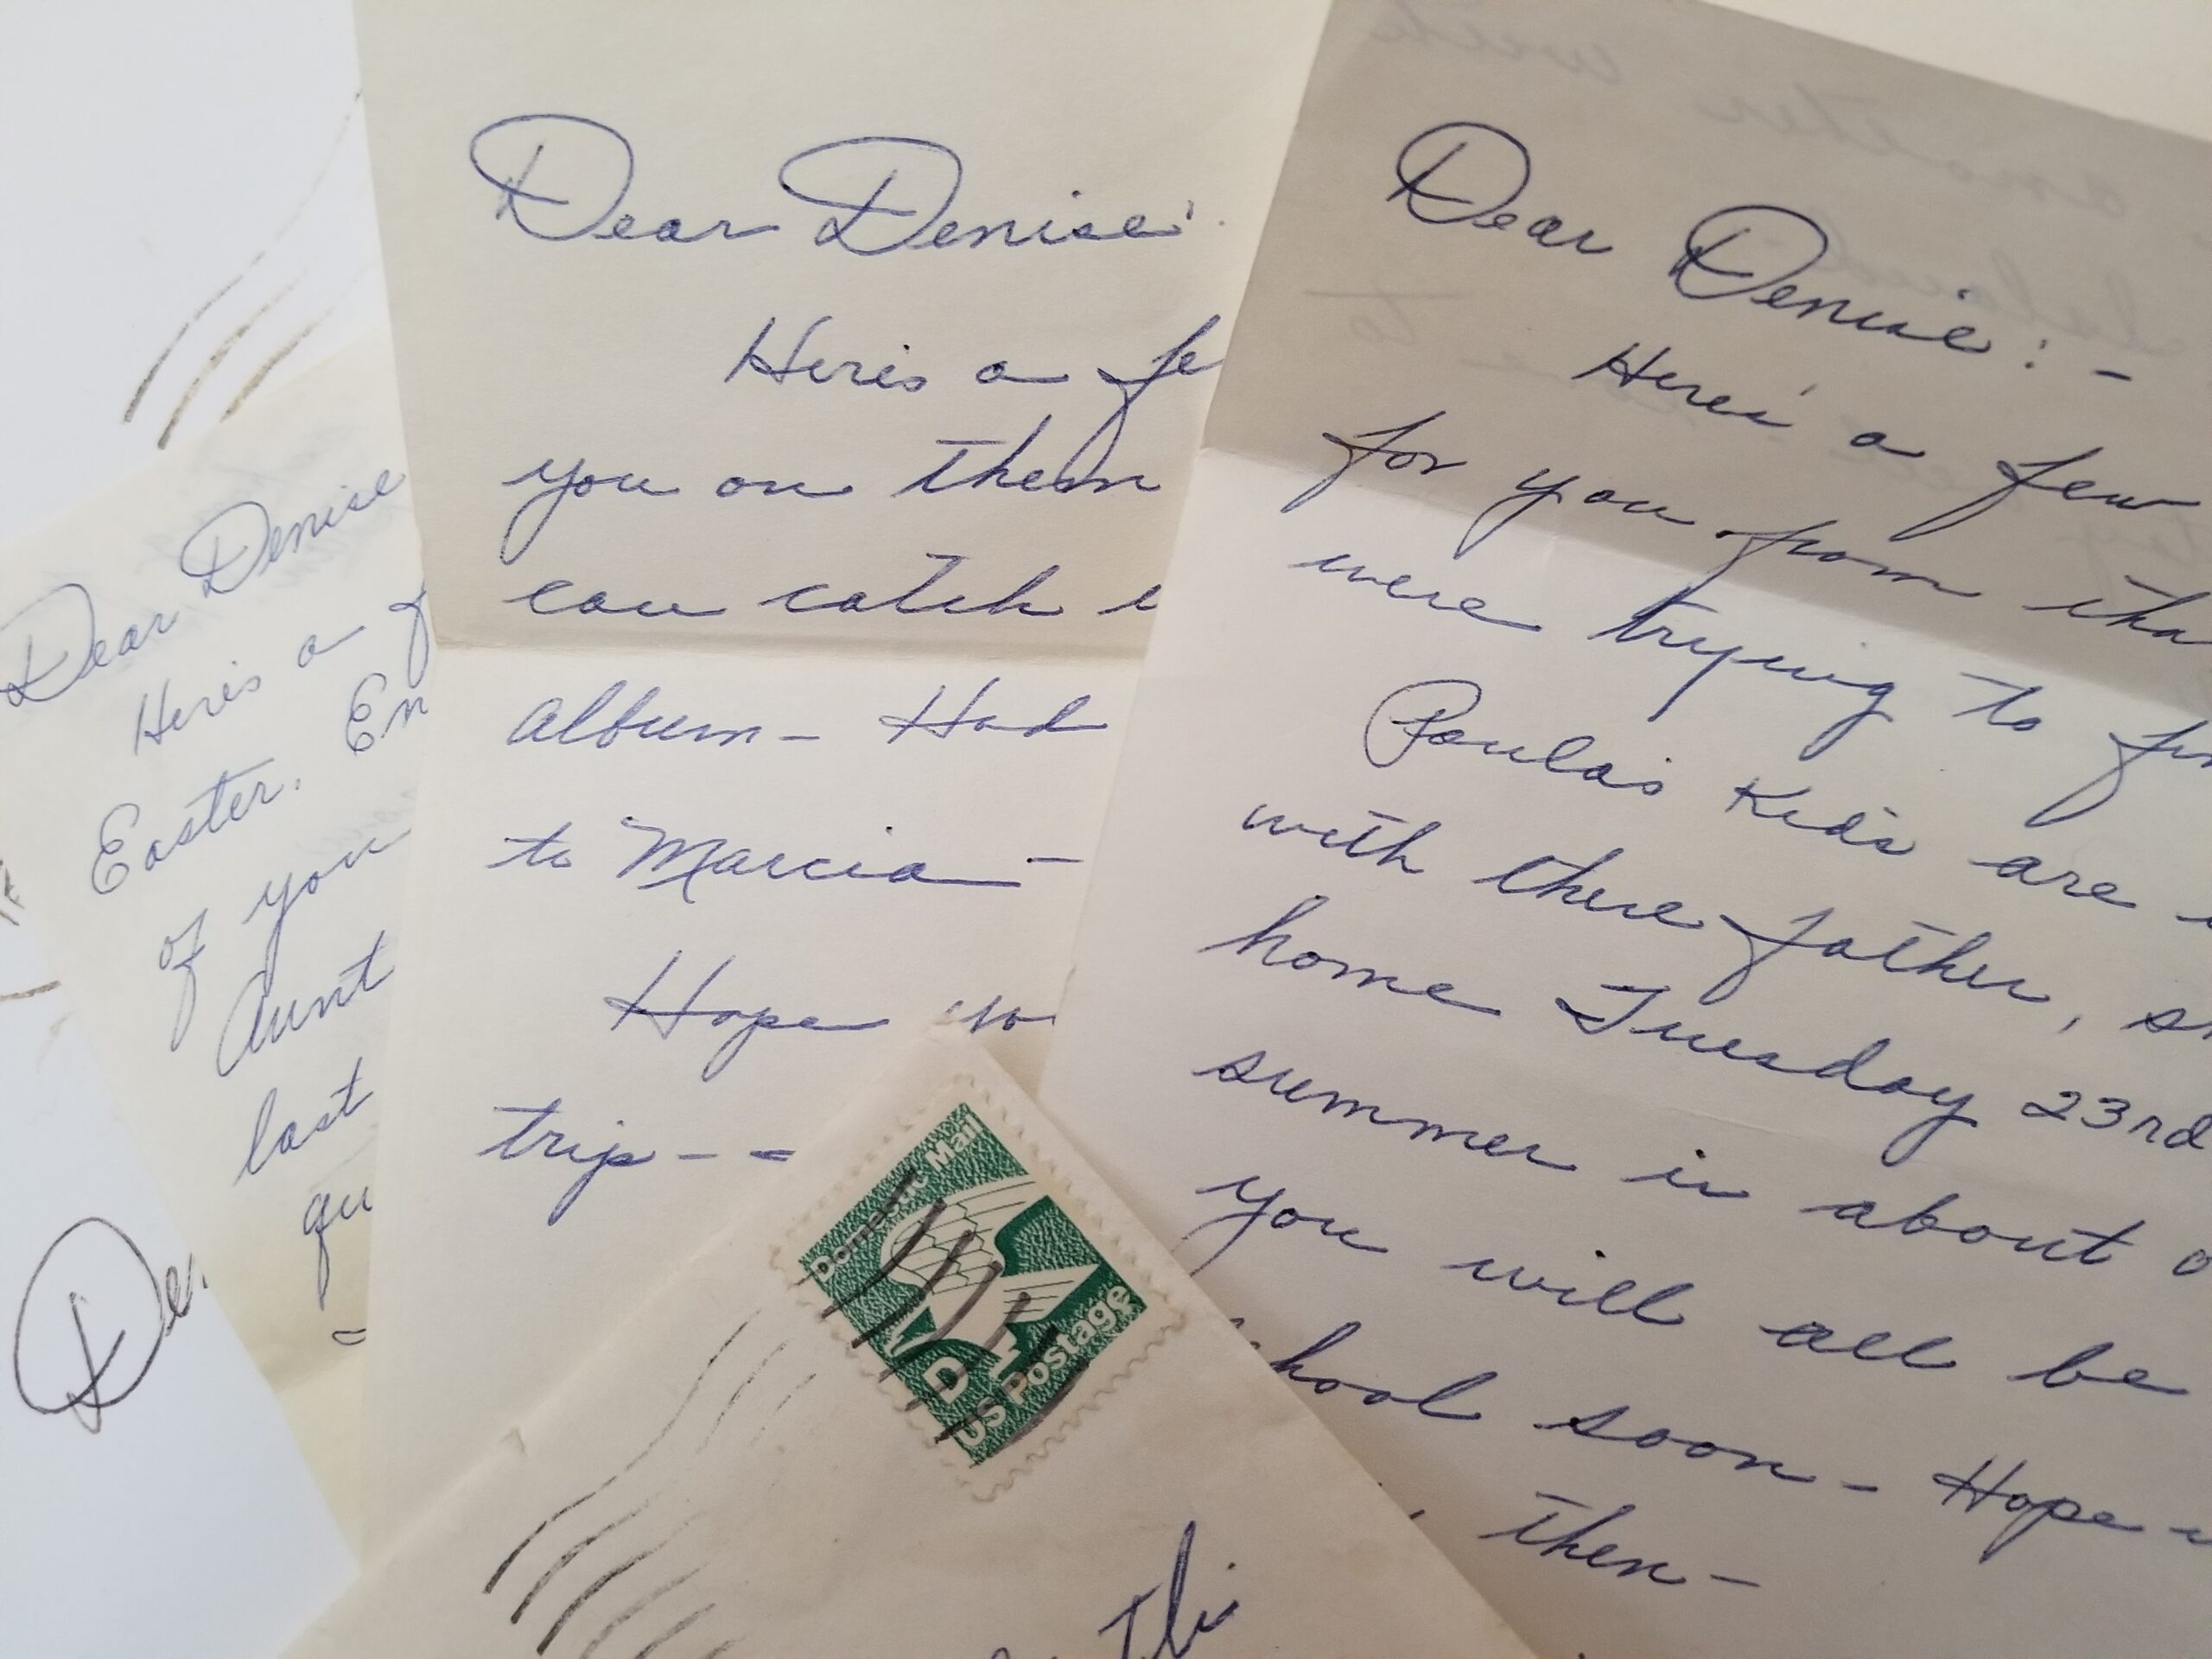 Dear Denise
Here's a f
Easter. En
of you
Aunt
last
qu
De
Dear Denise:
Here's a fe
you on them
can catch
album - Had
to Marcia -
Hope
trip - -
Dear Denise: -
Here's a few
for you from tha
were trying to
Paula's Kids are
with there father,
home Tuesday 23rd
summer is about
you will all be
hool soon - Hope
then -
Domestic Mail
D
US Postage